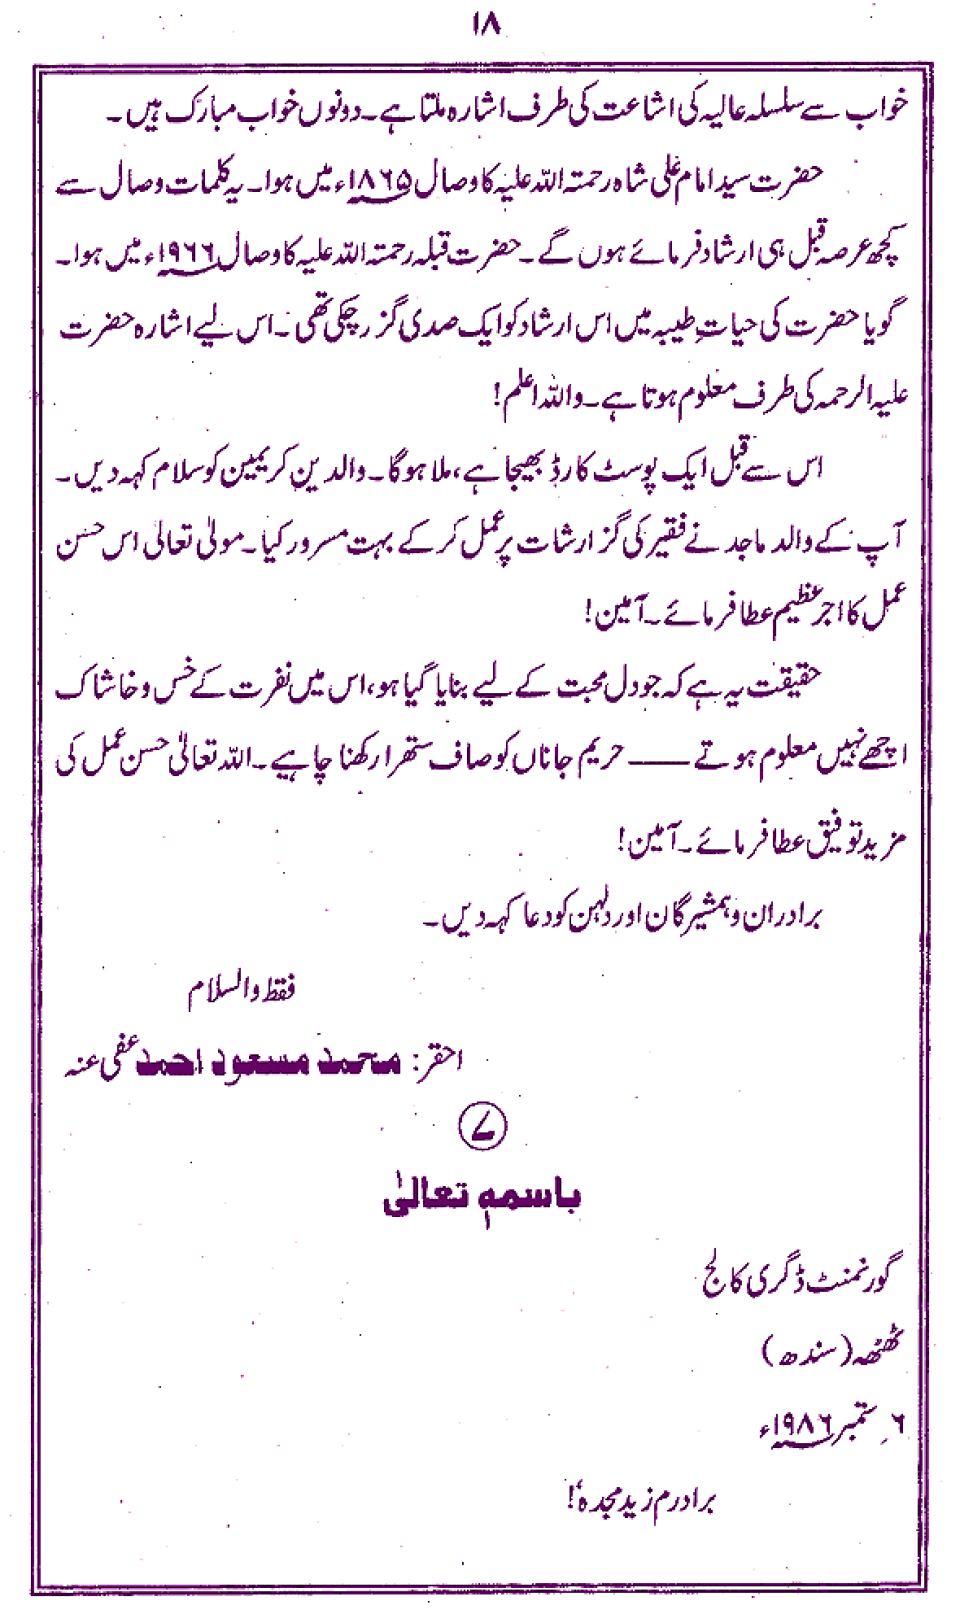 ۱۸
خواب سے سلسلہ عالیہ کی اشاعت کی طرف اشارہ ملتا ہے۔ دونوں خواب مبارک ہیں۔
حضرت سید امام علی شاہ رحمتہ اللہ علیہ کا وصال ۱۸۶۵ء میں ہوا۔ یہ کلمات وصال سے
کچھ عرصہ قبل ہی ارشاد فرمائے ہوں گے۔ حضرت قبلہ رحمتہ اللہ علیہ کا وصال ۱۹۶۶ء میں ہوا۔
گویا حضرت کی حیاتِ طیبہ میں اس ارشاد کو ایک صدی گزر چکی تھی۔ اس لیے اشارہ حضرت
علیہ الرحمہ کی طرف معلوم ہوتا ہے۔ واللہ اعلم!
اس سے قبل ایک پوسٹ کارڈ بھیجا ہے، ملا ہوگا۔ والدین کریمین کو سلام کہہ دیں۔
آپ کے والد ماجد نے فقیر کی گزارشات پر عمل کر کے بہت مسرور کیا۔ مولیٰ تعالیٰ اس حسن
عمل کا اجر عظیم عطا فرمائے۔ آمین!
حقیقت یہ ہے کہ جو دل محبت کے لیے بنایا گیا ہو، اس میں نفرت کے خس و خاشاک
اچھے نہیں معلوم ہوتے —— حریم جاناں کو صاف ستھرا رکھنا چاہیے۔ اللہ تعالیٰ حسن عمل کی
مزید توفیق عطا فرمائے۔ آمین!
برادران و ہمشیرگان اور دلہن کو دعا کہہ دیں۔
فقط والسلام
احقر: محمد مسعود احمد عفی عنہ
۷
باسمہٖ تعالیٰ
گورنمنٹ ڈگری کالج
ٹھٹھہ (سندھ)
۶؍ ستمبر ۱۹۸۶ء
برادرم زید مجدہٗ!